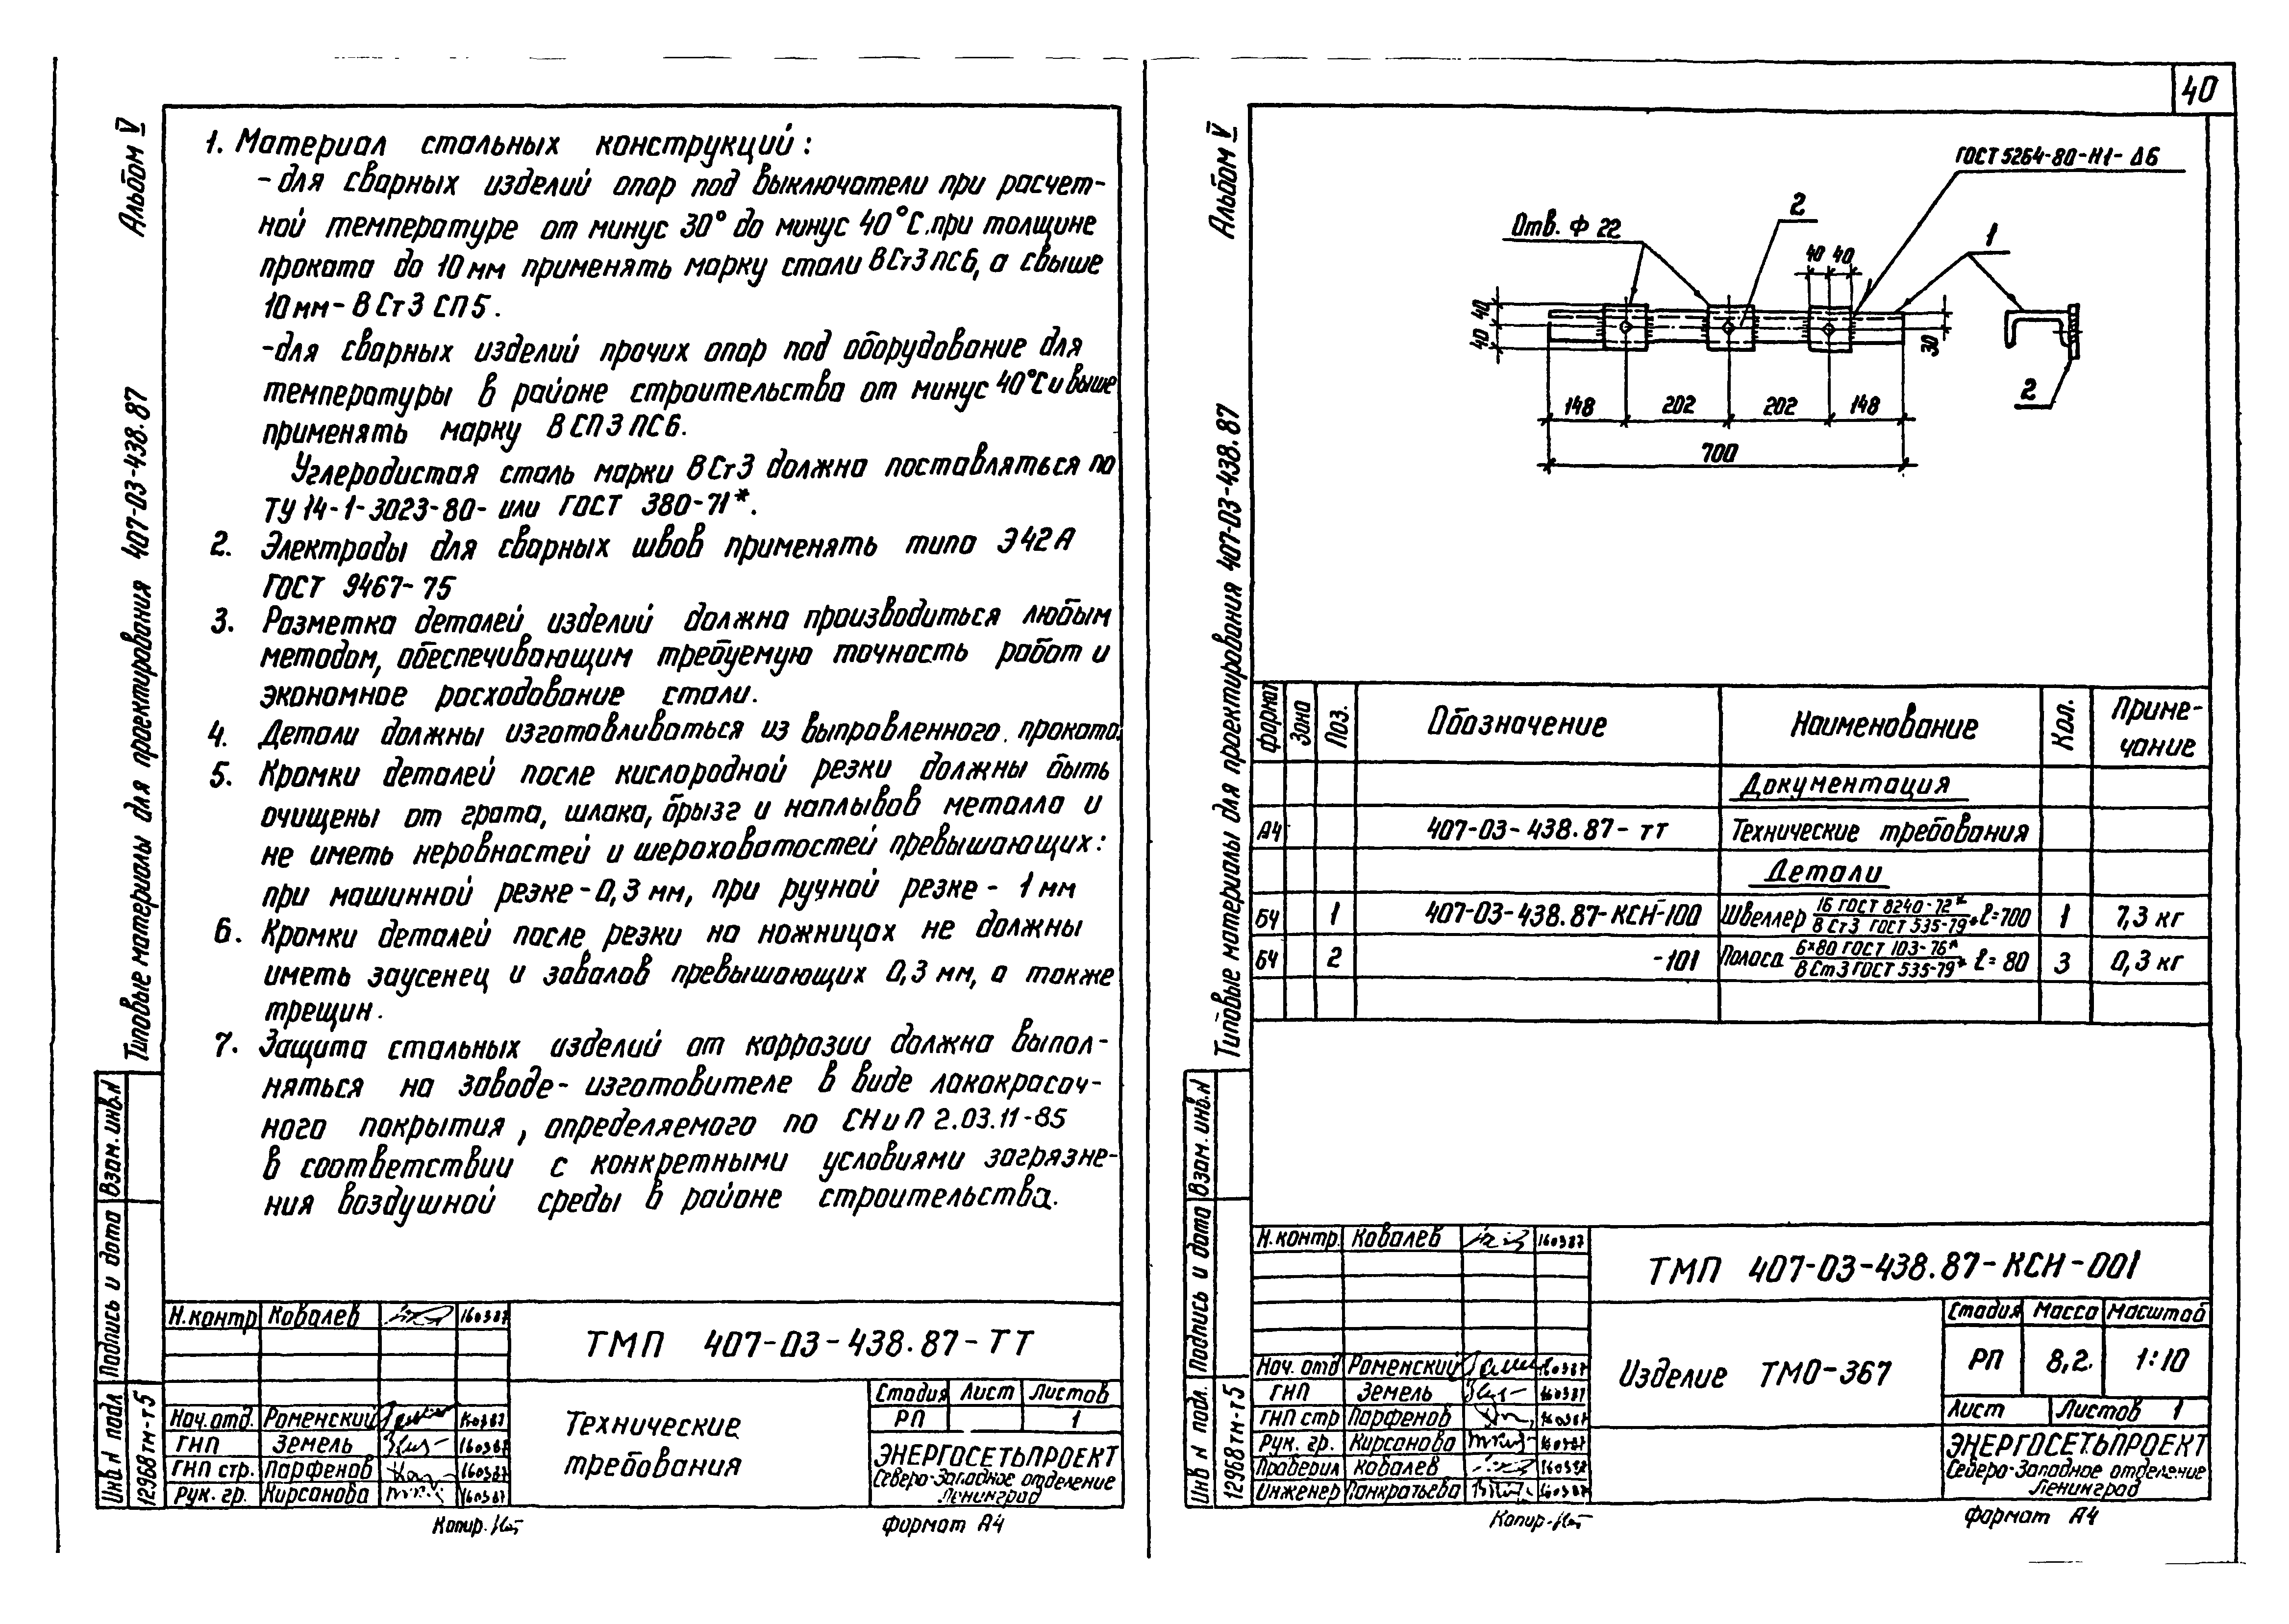 Альбом V
Типовые материалы для проектирования 407-03-438.87
1. Материал стальных конструкций:
- для сварных изделий опор под выключатели при расчет-
ной температуре от минус 30° до минус 40°С. при толщине
проката до 10мм применять марку стали ВСт3пс6, а свыше
10мм - ВСт3 СП5.
-для сварных изделий прочих опор под оборудование для
температуры в районе строительства от минус 40°С и выше
применять марку ВСП3ПС6.
Углеродистая сталь марки ВСт3 должна поставляться по
ТУ 14-1-3023-80- или ГОСТ 380-71*.
2. Электроды для сварных швов применять типа Э42А
ГОСТ 9467-75
3. Разметка деталей изделий должна производиться любым
методом, обеспечивающим требуемую точность работ и
экономное расходование стали.
4. Детали должны изготавливаться из выправленного. проката.
5. Кромки деталей после кислородной резки должны быть
очищены от грата, шлака, брызг и наплывов металла и
не иметь неровностей и шероховатостей превышающих:
при машинной резке - 0,3 мм, при ручной резке - 1 мм
6. Кромки деталей после резки на ножницах не должны
иметь заусенец и завалов превышающих 0,3 мм, а также
трещин.
7. Защита стальных изделий от коррозии должна выпол-
няться на заводе- изготовителе в виде лакокрасоч-
ного покрытия, определяемого по СНиП 2.03.11-85
в соответствии с конкретными условиями загрязне-
ния воздушной среды в районе строительства.
Взам. инв.N
Подпись и дата
Инв N подл
12968тм-т5
Н.контр Ковалев 160387
Нач.отд. Роменский 160387
ГНП Земель 160387
ГНП стр. Парфенов 160387
Рук. гр. Кирсанова 160387
ТМП 407-03-438.87-ТТ
Технические
требования
Стадия Лист Листов
РП 1
ЭНЕРГОСЕТЬПРОЕКТ
Северо-Западное отделение
Ленинград
Копир.
формат А4
40
Альбом V
Типовые материалы для проектирования 407-03-438.87
ГОСТ 5264-80-Н1-Δ6
Отв. Ф 22
2
1
40 40
40
40
30
2
148 202 202 148
700
формат Зона Поз. Обозначение Наименование Кол. Приме-
чание
Документация
А4 407-03-438.87-ТТ Технические требования
Детали
БЧ 1 407-03-438.87-КСН-100 Швеллер 16 ГОСТ 8240-72* / ВСт3 ГОСТ 535-79* ℓ=700 1 7,3 кг
БЧ 2 -101 Полоса 6х80 ГОСТ 103-76* / ВСт3 ГОСТ 535-79* ℓ=80 3 0,3 кг
Взам. инв.N
Подпись и дата
Инв N подл.
12968тм-т5
Н.контр. Ковалев 160387
Нач. отд Роменский 160387
ГНП Земель 160387
ГНП стр Парфенов 160387
Рук. гр. Кирсанова 160387
Проверил Ковалев 160387
Инженер Панкратьева 160387
ТМП 407-03-438.87-КСН-001
Изделие ТМО-367
Стадия Масса Масштаб
РП 8,2. 1:10
Лист Листов 1
ЭНЕРГОСЕТЬПРОЕКТ
Северо-Западное отделение
Ленинград
Копир-
формат А4